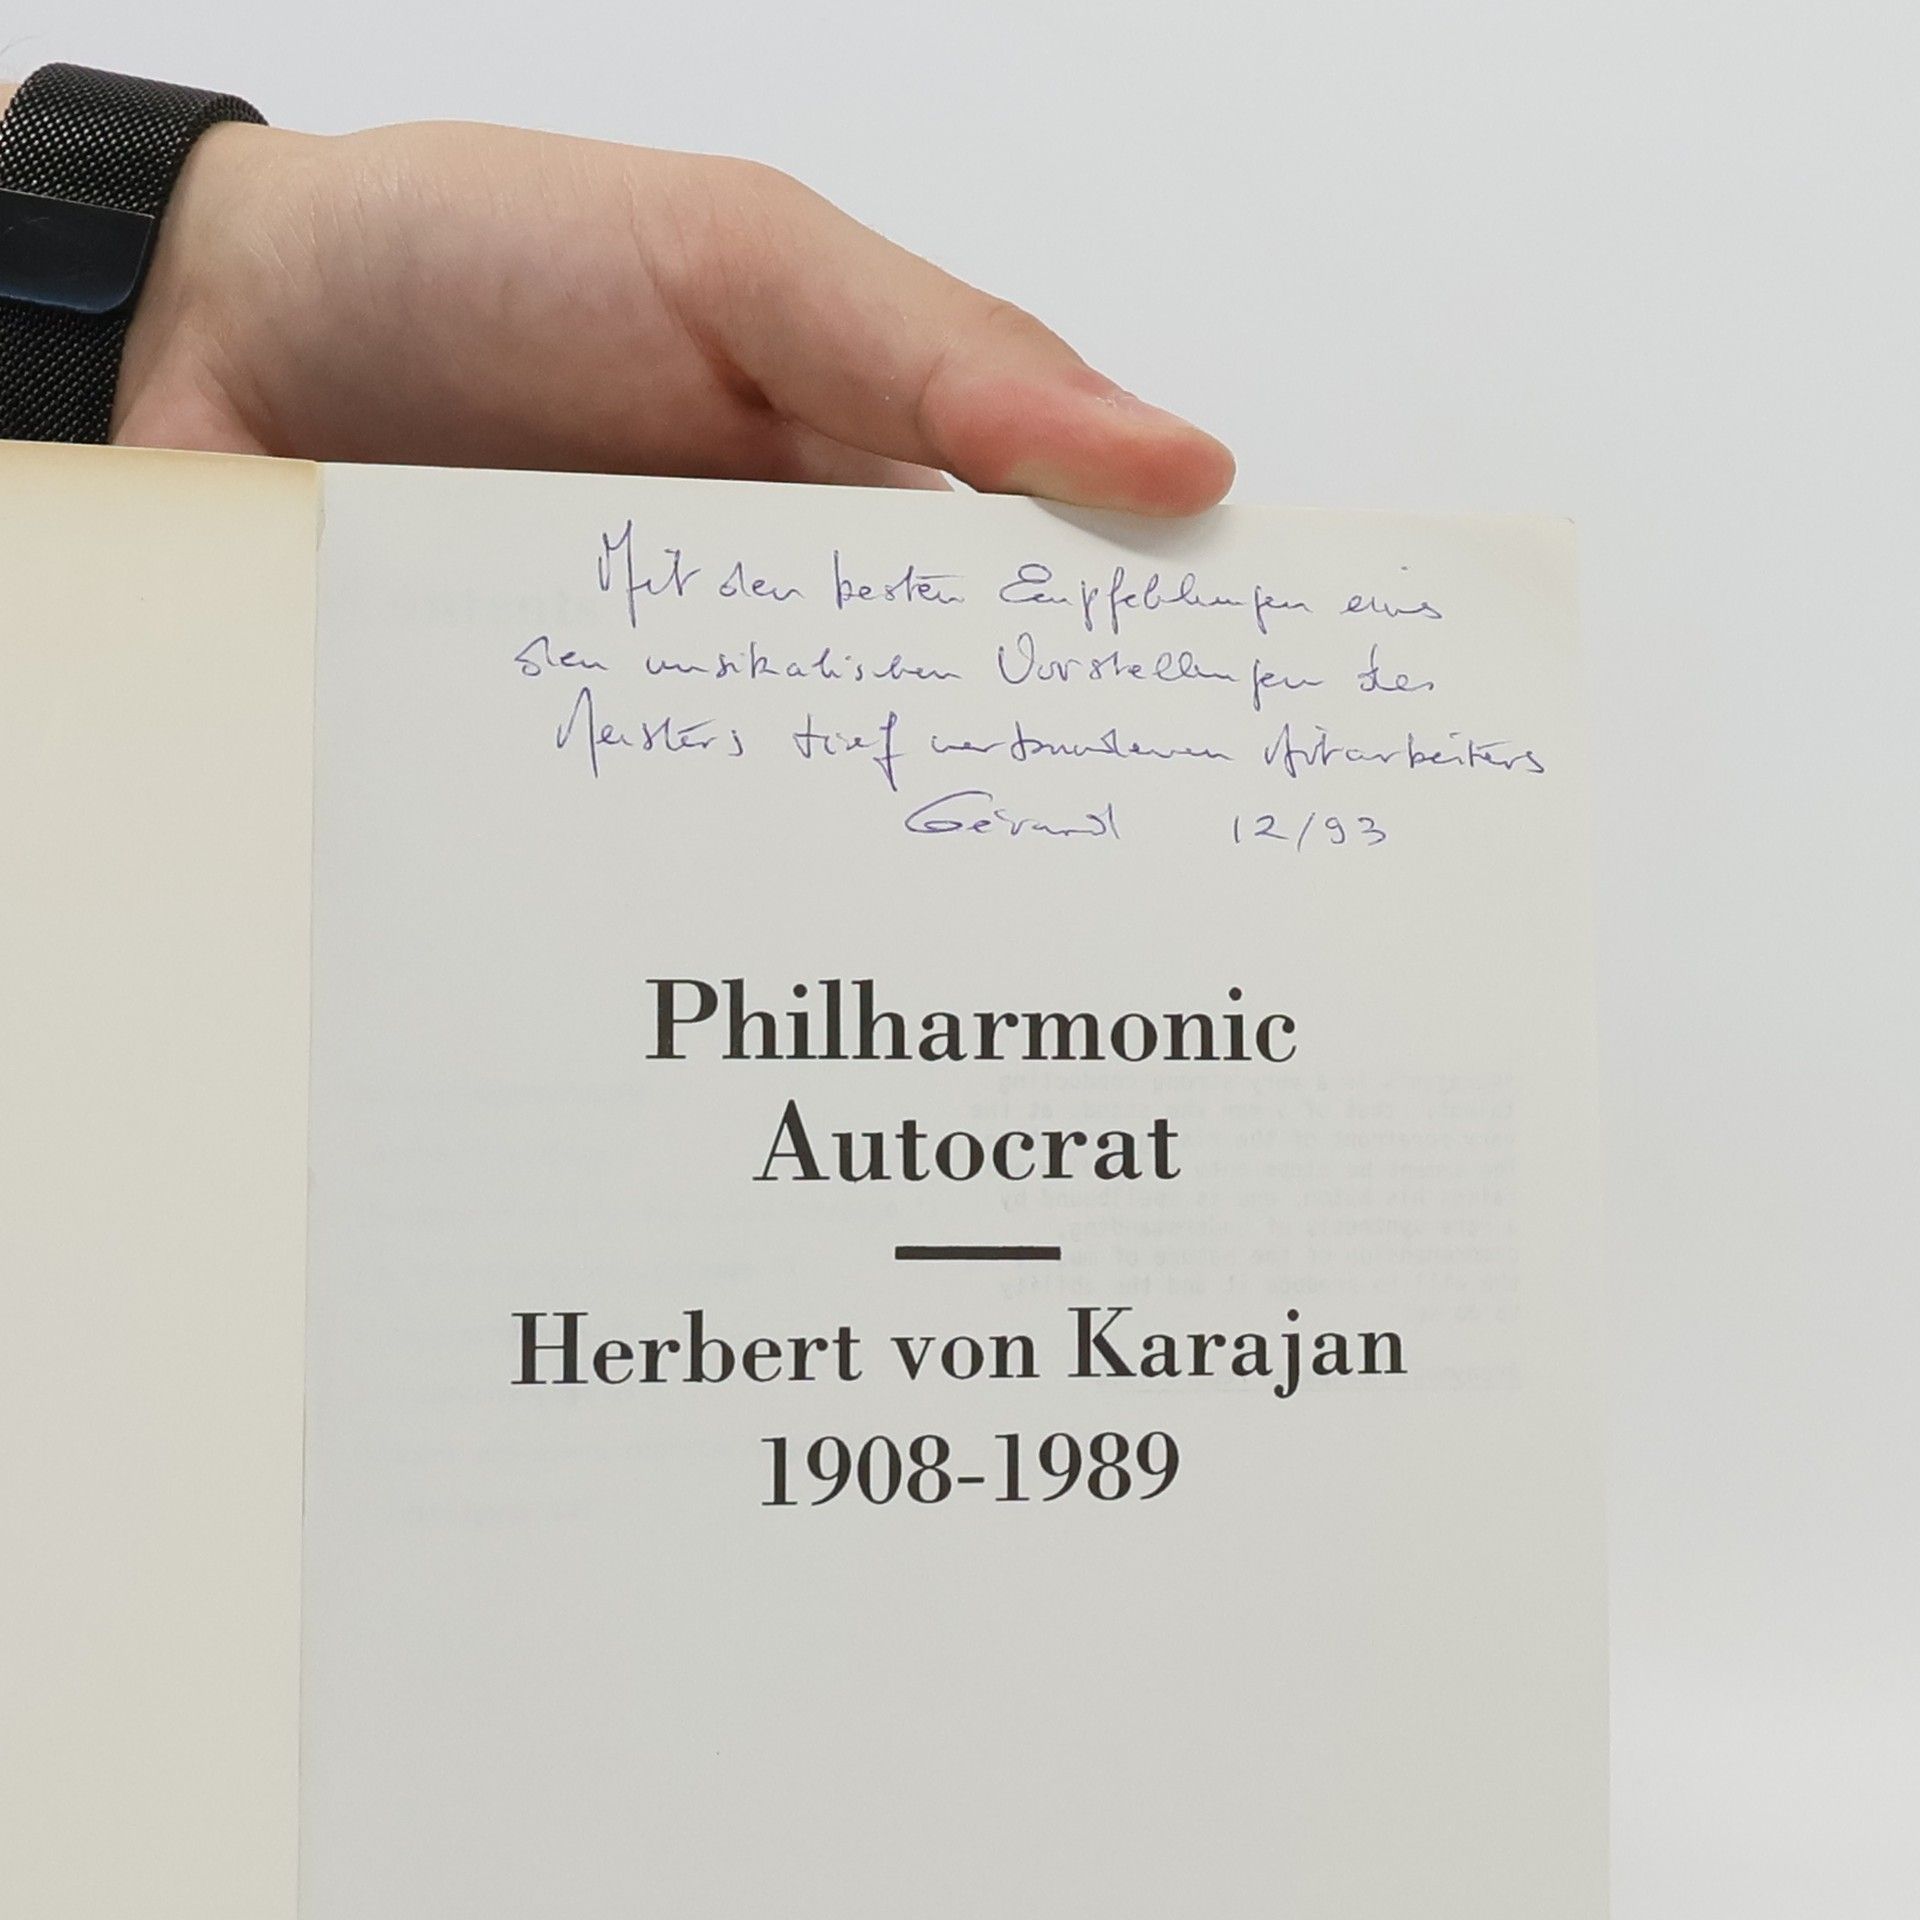 Mit den besten Empfehlungen eines
den musikalischen Vorstellungen des
Meisters tief verbundenen Mitarbeiters
Gérard 12/93
Philharmonic
Autocrat
Herbert von Karajan
1908-1989